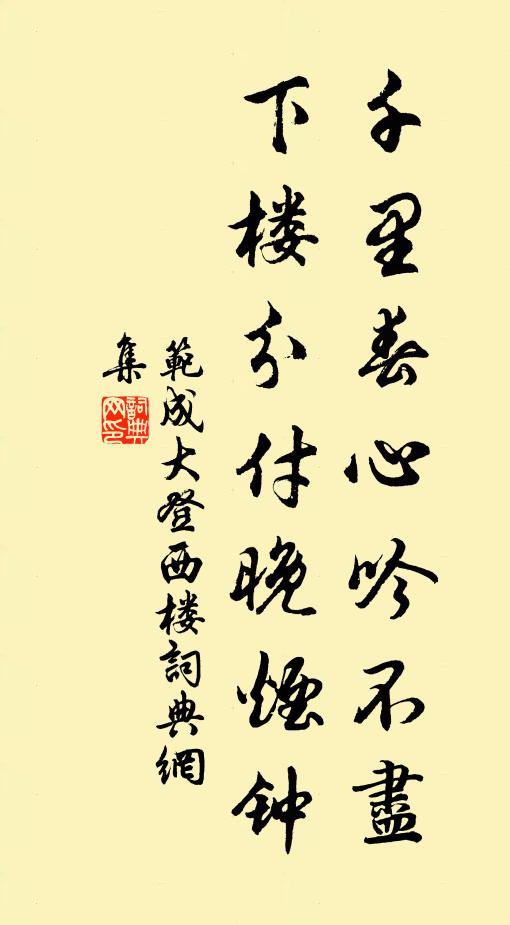 千里春心吟不盡
下楼分付晚煙钟
範成大登西楼詞典網
集
詞典
网印